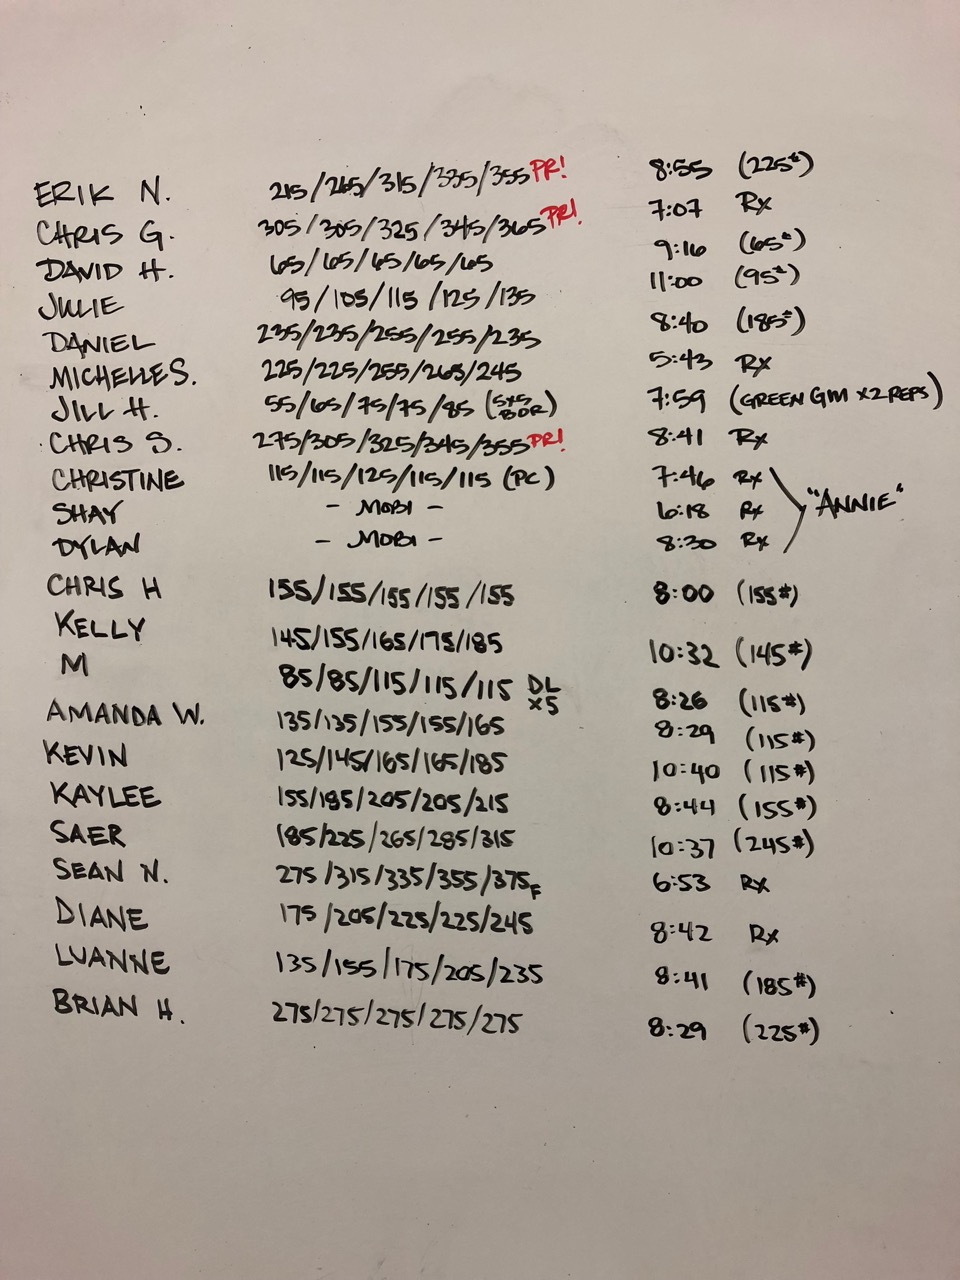 ERIK N. 215/265/315/335/355 PR! 8:55 (225#)
CHRIS G. 305/305/325/345/365 PR! 7:07 Rx
DAVID H. 65/65/65/65/65 9:16 (65#)
JULIE 95/105/115/125/135 11:00 (95#)
DANIEL 235/235/255/255/235 8:40 (185#)
MICHELLE S. 225/225/255/265/245 5:43 Rx
JILL H. 55/65/75/75/85 (5x5 BOR) 7:59 (GREEN GM x2 REPS)
CHRIS S. 275/305/325/345/355 PR! 8:41 Rx
CHRISTINE 115/115/125/115/115 (PC) 7:46 Rx
SHAY - MOBI - 6:18 Rx "ANNIE"
DYLAN - MOBI - 8:30 Rx
CHRIS H 155/155/155/155/155 8:00 (155#)
KELLY 145/155/165/175/185 10:32 (145#)
M 85/85/115/115/115 DL x5 8:26 (115#)
AMANDA W. 135/135/155/155/165 8:29 (115#)
KEVIN 125/145/165/165/185 10:40 (115#)
KAYLEE 155/185/205/205/215 8:44 (155#)
SAER 185/225/265/285/315 10:37 (245#)
SEAN N. 275/315/335/355/375F 6:53 Rx
DIANE 175/205/225/225/245 8:42 Rx
LUANNE 135/155/175/205/235 8:41 (185#)
BRIAN H. 275/275/275/275/275 8:29 (225#)